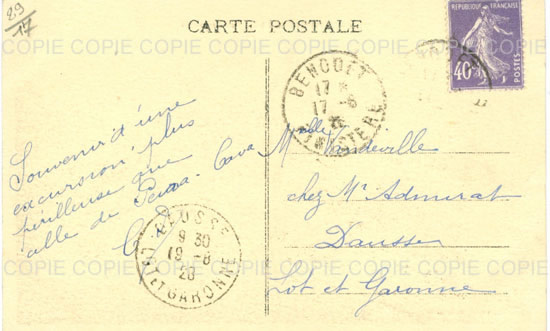 29
17
CARTE POSTALE
REPUBLIQUE FRANCAISE
40c
POSTES
BENODET
17 -6
FINISTERE
Souvenir d'une
excursion, plus
périlleuse que
celle de
Mlle Vandeville
chez Mr Admirat
Dausse
Lot et Garonne
DAUSSE
9 30
19 -6
26
LOT ET GARONNE
COPIE COPIE COPIE COPIE COPIE COPIE COPIE
COPIE COPIE COPIE COPIE COPIE COPIE COPIE
COPIE COPIE COPIE COPIE COPIE COPIE COPIE